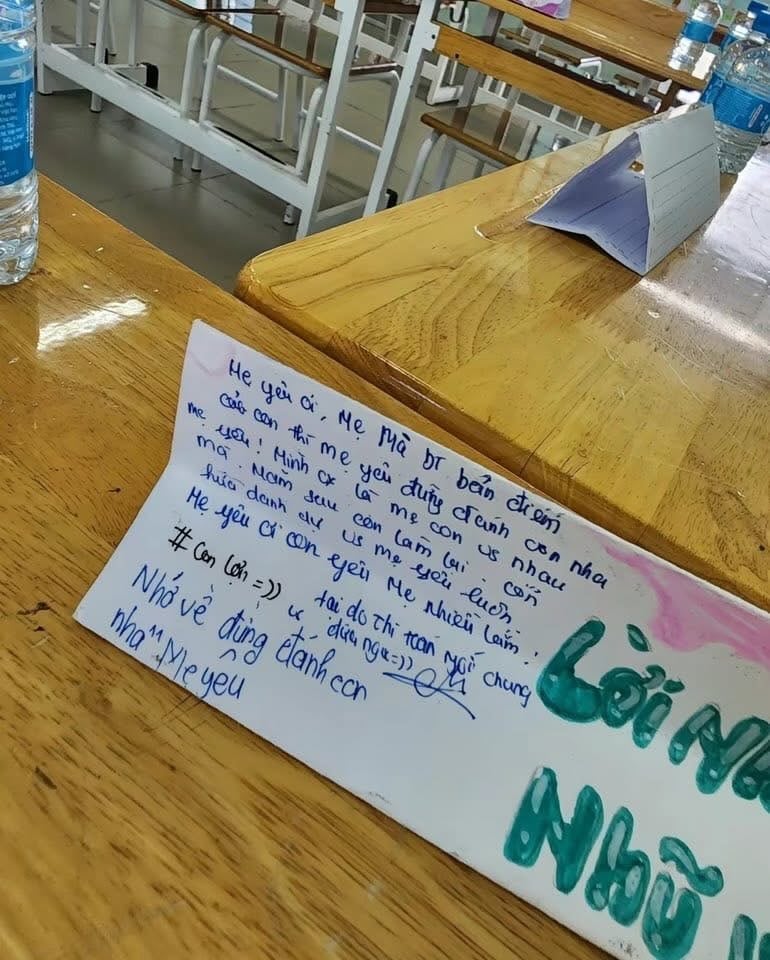 Mẹ yêu ơi, Mẹ Mà bt bản điểm
của con thì mẹ yêu đừng đánh con nha
mẹ yêu! Mình cx là mẹ con vs nhau
mà. Năm sau con làm lại. còn
hứa danh dự vs mẹ yêu luôn
Mẹ yêu ơi con yêu Mẹ nhiều lắm!
#Con lợn =)) tại do thi toàn ngồi chung
vs đứa ngu =))
Nhớ về đừng đánh con
nha" Mẹ yêu
Lời Nh
Nhữ